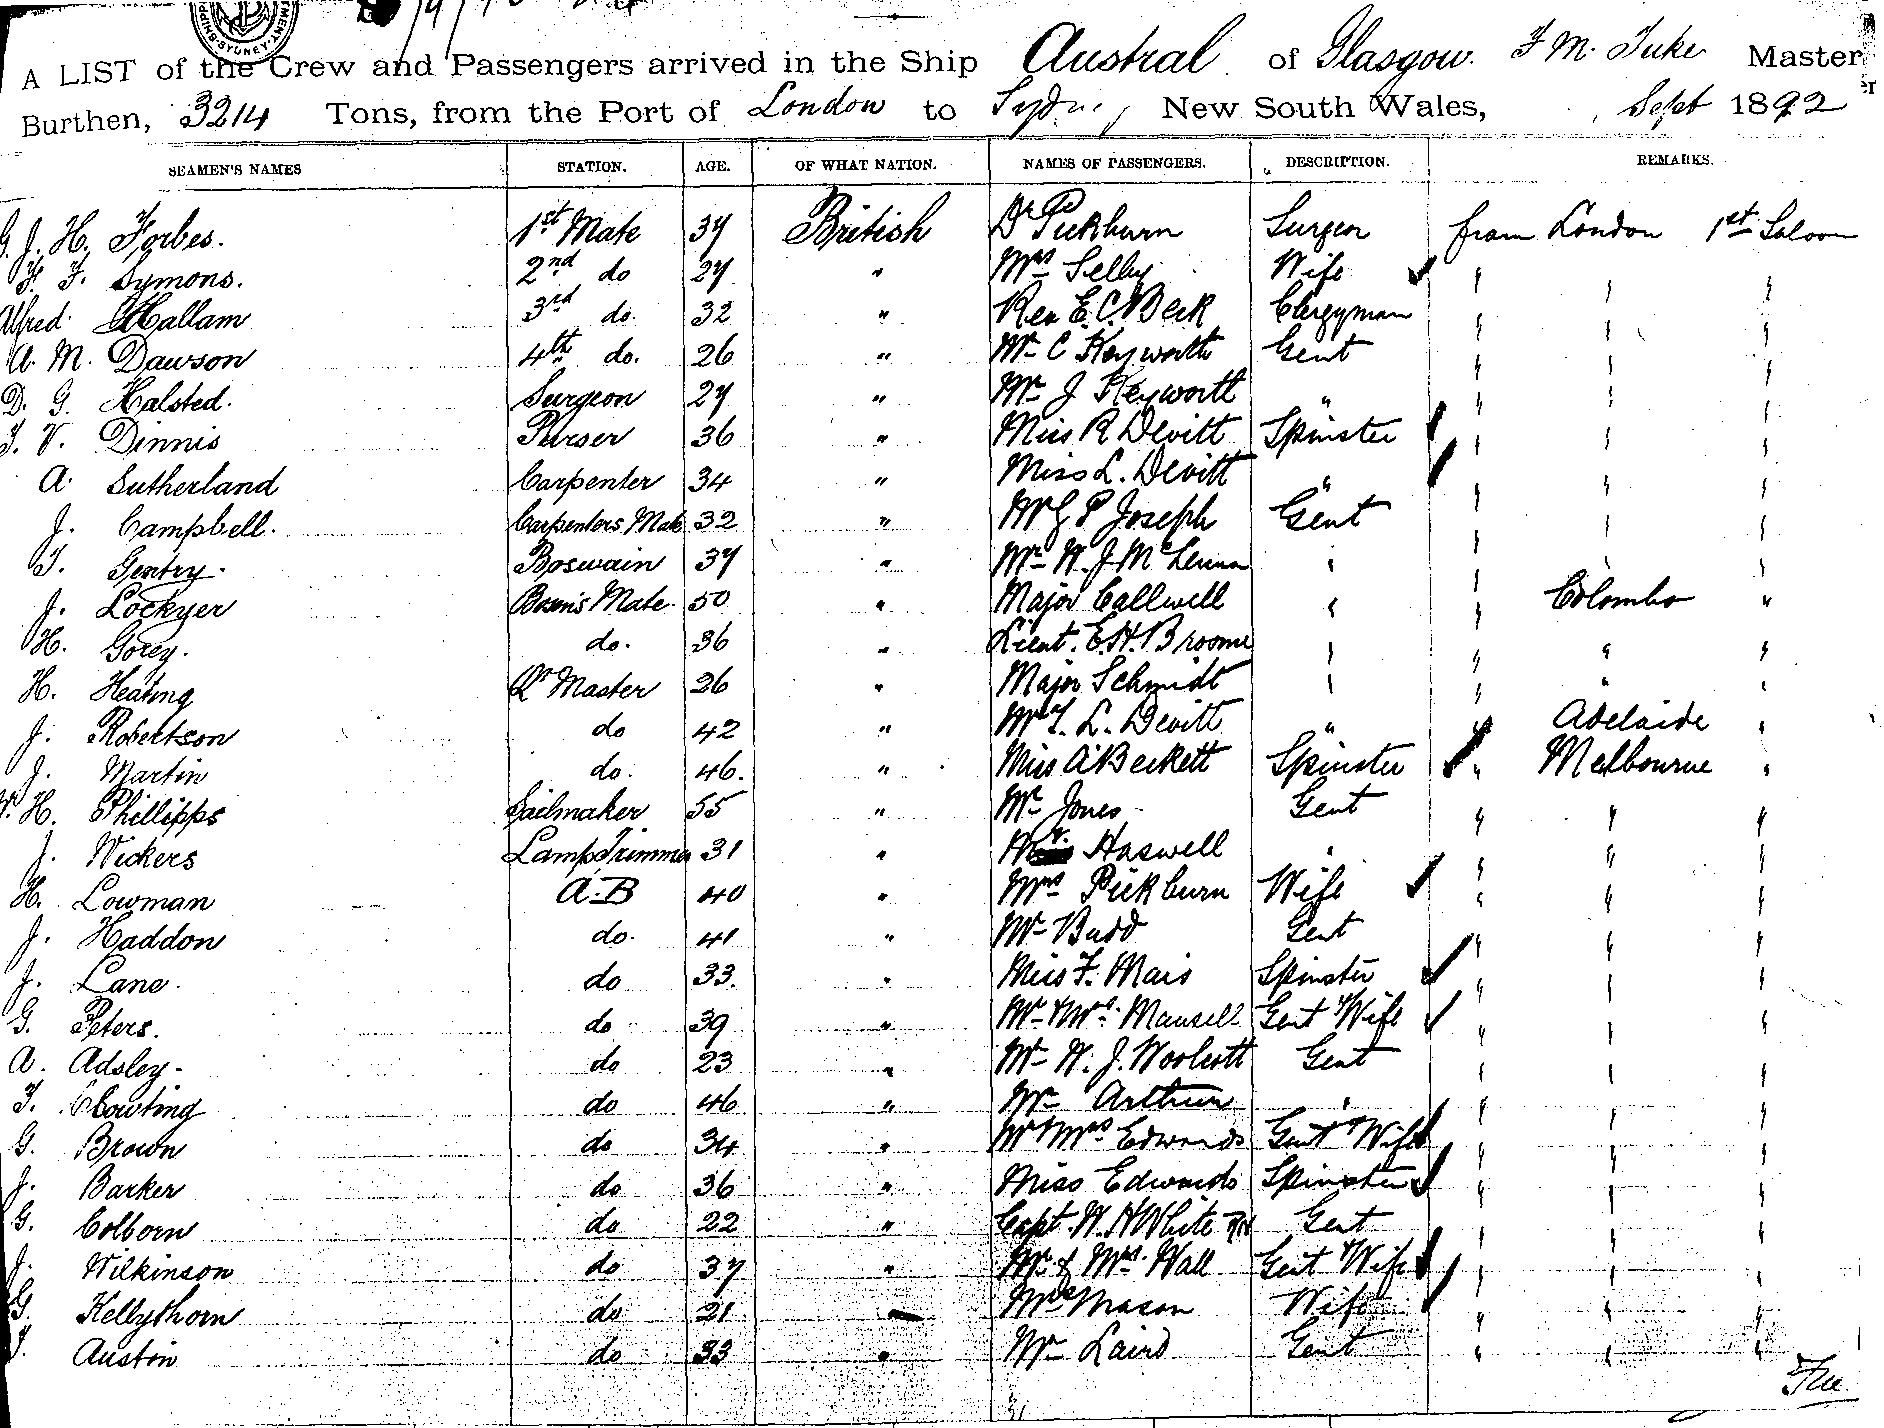 A LIST of the Crew and Passengers arrived in the Ship Austral of Glasgow. F M. Tuke Master
Burthen, 3214 Tons, from the Port of London to Sydney New South Wales, Sept 1892
SEAMEN'S NAMES STATION. AGE. OF WHAT NATION. NAMES OF PASSENGERS. DESCRIPTION. REMARKS.
G. J. H. Forbes. 1st Mate 37 British Dr Pickburn Surgeon from London 1st Saloon
F. F. Symons. 2nd do 27 " Mrs Selby Wife " " "
Alfred Hallam 3rd do. 32 " Rev E. C. Beck Clergyman " " "
A. M. Dawson 4th do. 26 " Mr C Keyworth Gent " " "
D. G. Halsted. Surgeon 27 " Mr J Keyworth " " " "
T. V. Dinnis Purser 36 " Miss R Devitt Spinster " " "
A. Sutherland Carpenter 34 " Miss L. Devitt " " " "
J. Campbell. Carpenters Mate 32 " Mr G P Joseph Gent " " "
T. Gentry. Boswain 37 " Mr W. J. McLennan " " " "
J. Lockyer Bosn's Mate. 50 " Major Callwell " " Colombo "
H. Gorey. do. 36 " Lieut. E. H. Broome " " " "
H. Heating Qr Master 26 " Major Schmidt " " " "
J. Robertson do 42 " Mr T. L. Devitt " " Adelaide "
J. Martin do. 46. " Miss A'Beckett Spinster " Melbourne "
W. H. Phillipps Sailmaker 55 " Mr Jones Gent " " "
J. Vickers Lamp Trimmer 31 " Mr. Haswell " " " "
H. Lowman A.B 40 " Mrs Pickburn Wife " " "
J. Haddon do. 41 " Mr Budd Gent " " "
J. Lane. do 33. " Miss F. Mais Spinster " " "
G. Peters. do 39 " Mr & Mrs Mansell Gent & Wife " " "
A. Adsley do 23 " Mr W. J. Woolcott Gent " " "
T. Clowting do 46 " Mr Arthur " " " "
G. Brown do 34 " Mr & Mrs Edwards Gent & Wife " " "
J. Barker do 36 " Miss Edwards Spinster " " "
G. Colborn do 22 " Capt. W. H White RN Gent " " "
J. Wilkinson do 37 " Mr & Mrs Wall Gent & Wife " " "
G. Kellythorn do 21 " Mrs Mason Wife " " "
T. Austin do 33 " Mr Laird Gent " " "
31